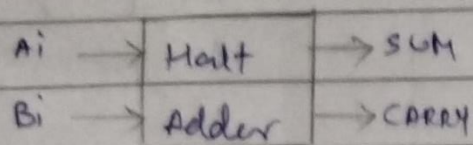 Ai → Half → SUM
Bi → Adder → CARRY